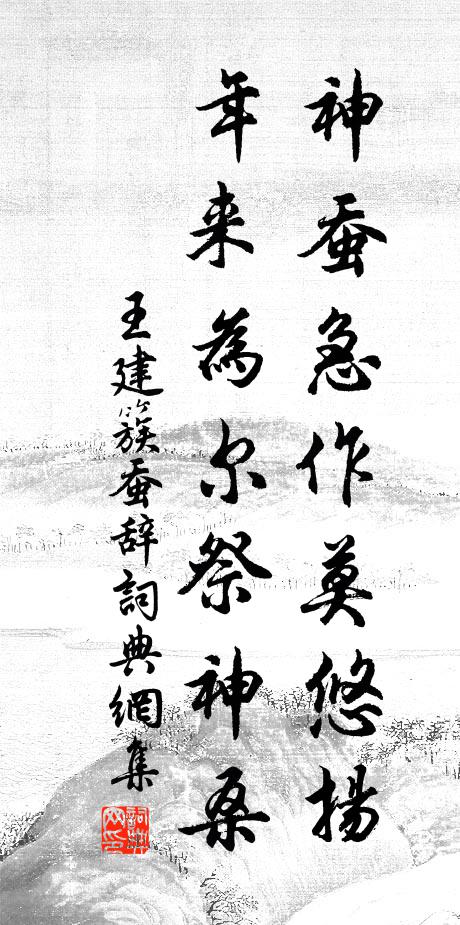 神蚕急作莫悠揚
年来為尔祭神桑
王建簇蚕辞詞典網集